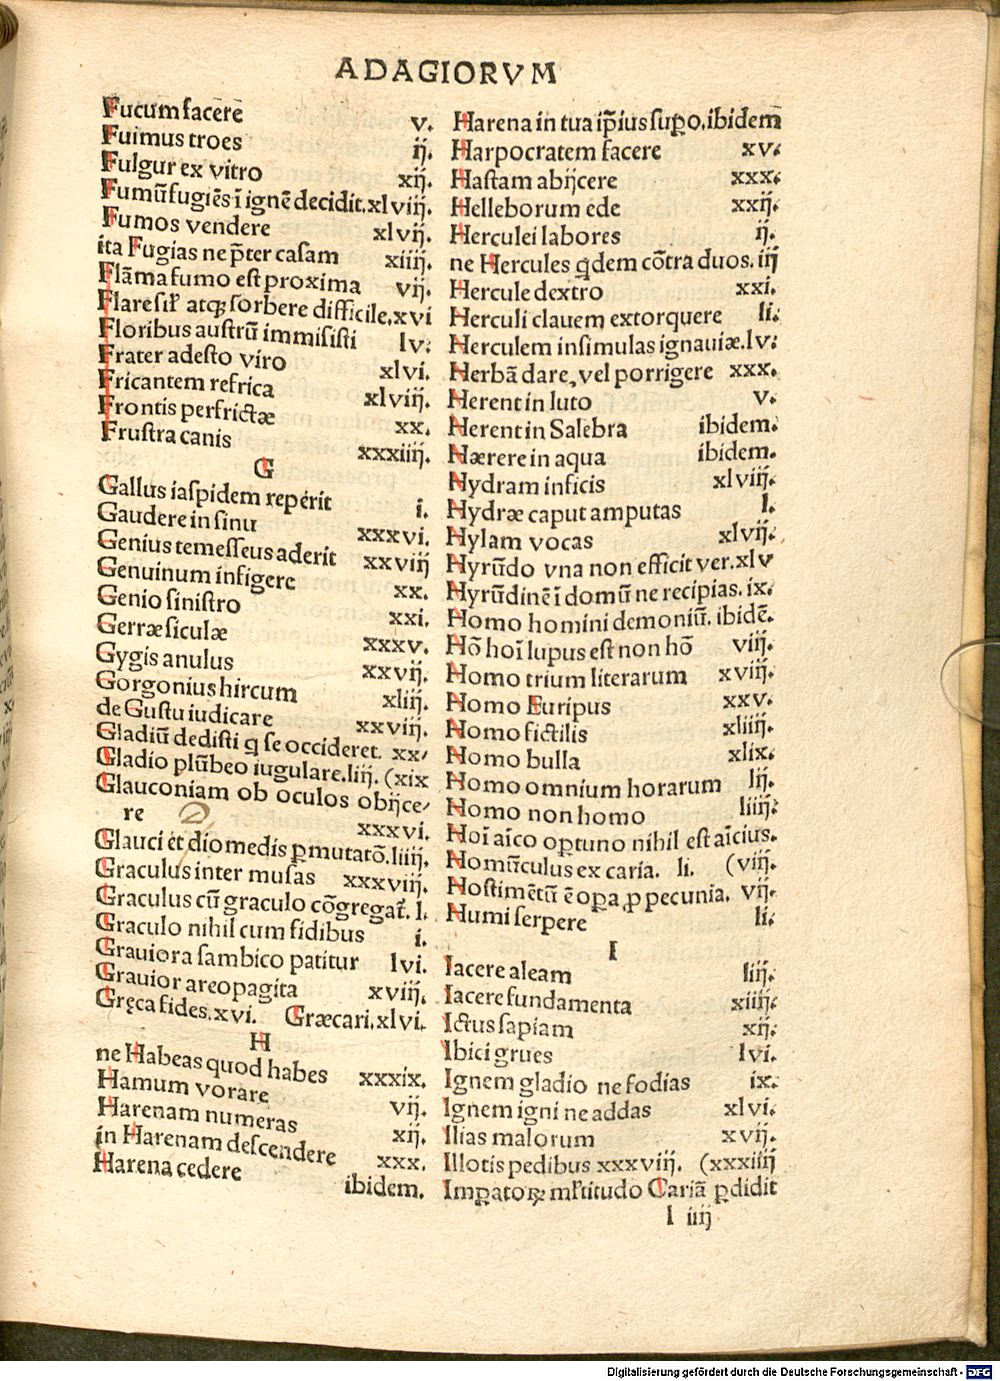 ADAGIORVM
Fucum facere v.
Fuimus troes ij.
Fulgur ex vitro xij.
Fumū fugiēs ī ignē decidit. xlviij.
Fumos vendere xlvij.
ita Fugias ne p̄ter casam xiiij.
Flāma fumo est proxima vij.
Flare sił atqꝫ sorbere difficile. xvi
Floribus austrū immisisti lv.
Frater adesto viro xlvi.
Fricantem refrica xlviij.
Frontis perfrictæ xx.
Frustra canis xxxiiij.
G
Gallus iaspidem reperit i.
Gaudere in sinu xxxvi.
Genius temesseus aderit xxviij
Genuinum infigere xx.
Genio sinistro xxi.
Gerræ siculæ xxxv.
Gygis anulus xxvij.
Gorgonius hircum xliij.
de Gustu iudicare xxviij.
Gladiū dedisti q se occideret. xx/
Gladio plūbeo iugulare. liij. (xix
Glauconiam ob oculos obijce/
re xxxvi.
Glauci et diomedis ꝑmutatō. liiij.
Graculus inter musas xxxviij.
Graculus cū graculo cōgregat̄. l.
Graculo nihil cum fidibus i.
Grauiora sambico patitur lvi.
Grauior areopagita xviij.
Gręca fides. xvi. Græcari. xlvi.
H
ne Habeas quod habes xxxix.
Hamum vorare vij.
Harenam numeras xij.
in Harenam descendere xxx.
Harena cedere ibidem.
Harena in tua ip̄ius suꝑo. ibidem
Harpocratem facere xv.
Hastam abijcere xxx.
Helleborum ede xxij.
Herculei labores ij.
ne Hercules qdem cōtra duos. iij
Hercule dextro xxi.
Herculi clauem extorquere li.
Herculem insimulas ignauiæ. lv.
Herbā dare, vel porrigere xxx.
Herent in luto v.
Herent in Salebra ibidem.
Hærere in aqua ibidem.
Hydram inficis xlviij.
Hydræ caput amputas l.
Hylam vocas xlvij.
Hyrūdo vna non efficit ver. xlv
Hyrūdinē ī domū ne recipias. ix.
Homo homini demoniū. ibidē.
Hō hoī lupus est non hō viij.
Homo trium literarum xviij.
Homo Euripus xxv.
Homo fictilis xliiij.
Homo bulla xlix.
Homo omnium horarum lij.
Homo non homo liiij.
Hoī aīco optuno nihil est aīcius.
Homūculus ex caria. li. (viij.
Hostimētū ē oꝑa ꝓ pecunia. vij.
Humi serpere li.
I
Iacere aleam liij.
Iacere fundamenta xiiij.
Ictus sapiam xij.
Ibici grues lvi.
Ignem gladio ne fodias ix.
Ignem igni ne addas xlvi.
Ilias malorum xvij.
Illotis pedibus xxxviij. (xxxiiij
Imꝑatoꝝ młtitudo Cariā ꝑdidit
l iiij
Digitalisierung gefördert durch die Deutsche Forschungsgemeinschaft - DFG